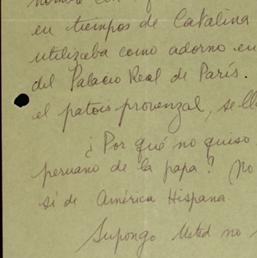 nombre con
en tiempos de Catalina
utilizaba como adorno en
del Palacio Real de París.
el patois provenzal, se ll
¿Por qué no quiso
peruano de la papa? (No
sí de América Hispana.
Supongo Usted no